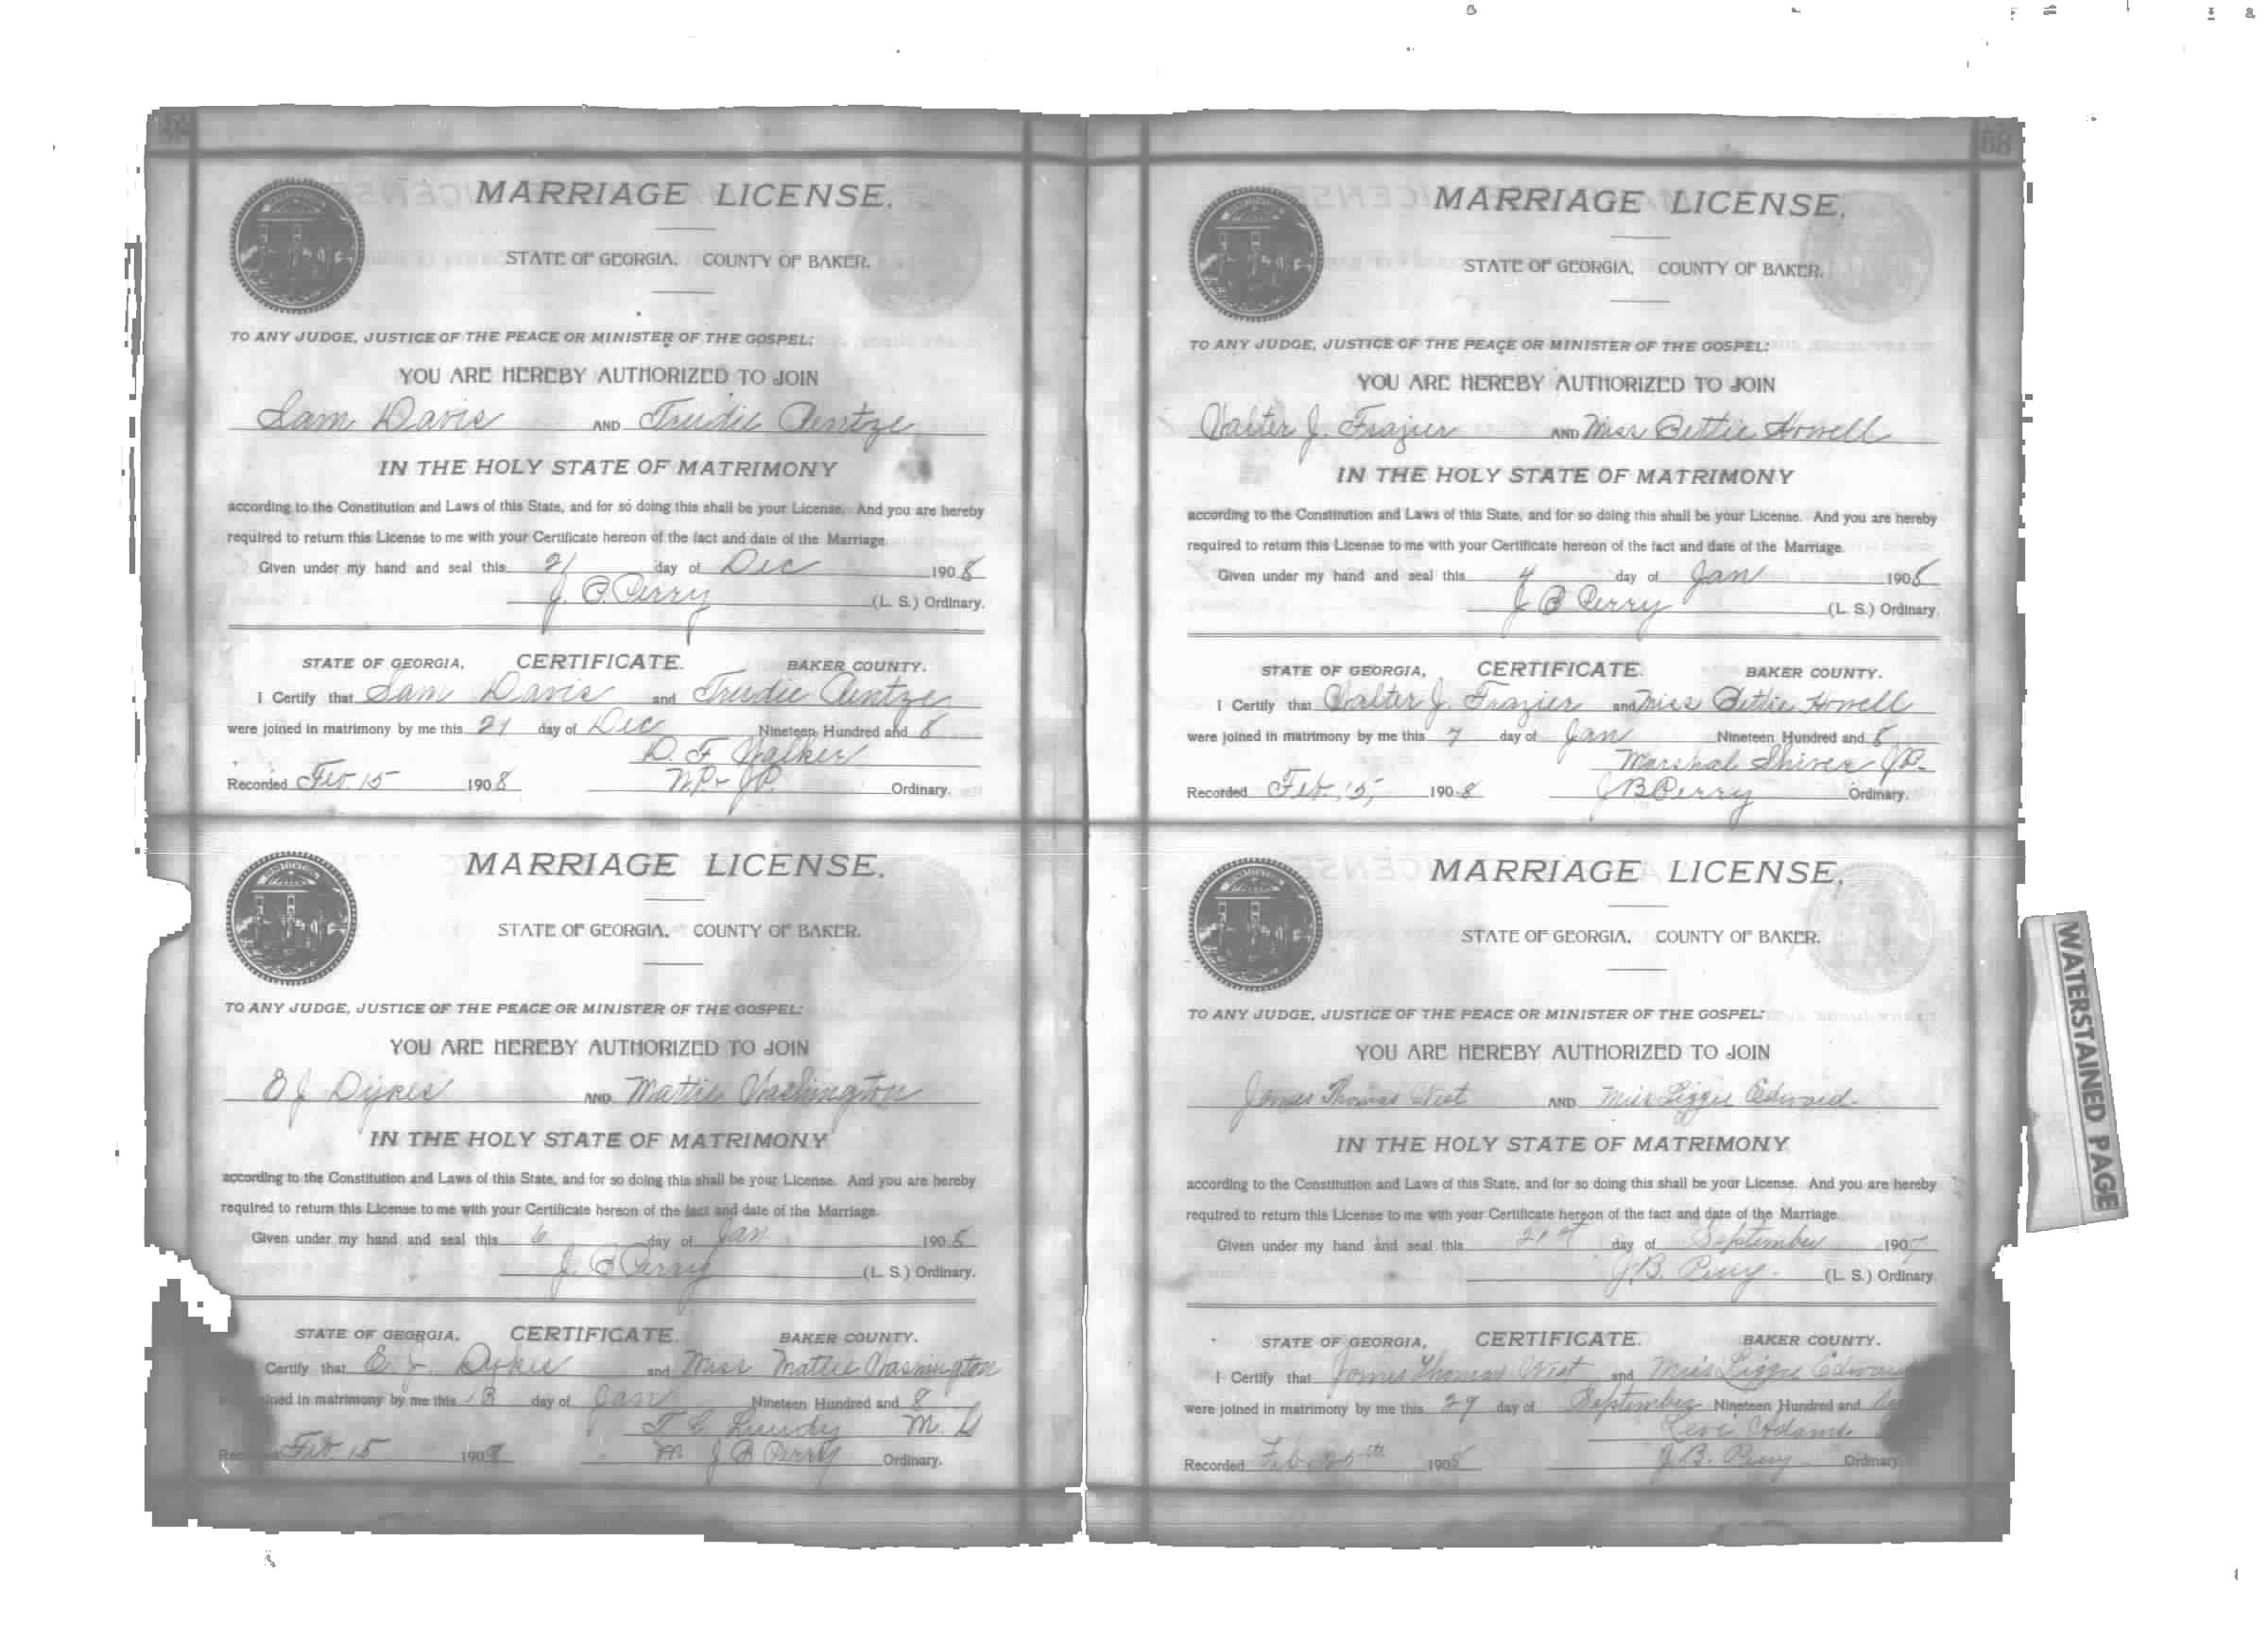 MARRIAGE LICENSE.
STATE OF GEORGIA, COUNTY OF BAKER.
TO ANY JUDGE, JUSTICE OF THE PEACE OR MINISTER OF THE GOSPEL:
YOU ARE HEREBY AUTHORIZED TO JOIN
Sam Davis AND Trudie
IN THE HOLY STATE OF MATRIMONY
according to the Constitution and Laws of this State, and for so doing this shall be your License. And you are hereby
required to return this License to me with your Certificate hereon of the fact and date of the Marriage.
Given under my hand and seal this 21 day of Dec 1908
J. B. Perry (L. S.) Ordinary.
STATE OF GEORGIA, CERTIFICATE. BAKER COUNTY.
I Certify that Sam Davis and Trudie
were joined in matrimony by me this 21 day of Dec Nineteen Hundred and 8
D. F. Walker
Recorded Feb. 15 1908 N.P. J.P. Ordinary.
MARRIAGE LICENSE.
STATE OF GEORGIA, COUNTY OF BAKER.
TO ANY JUDGE, JUSTICE OF THE PEACE OR MINISTER OF THE GOSPEL:
YOU ARE HEREBY AUTHORIZED TO JOIN
E J Dykes AND Mattie Washington
IN THE HOLY STATE OF MATRIMONY
according to the Constitution and Laws of this State, and for so doing this shall be your License. And you are hereby
required to return this License to me with your Certificate hereon of the fact and date of the Marriage.
Given under my hand and seal this 6 day of Jan 1908
J. B. Perry (L. S.) Ordinary.
STATE OF GEORGIA, CERTIFICATE. BAKER COUNTY.
Certify that E. J. Dykes and Miss Mattie Washington
ined in matrimony by me this 13 day of Jan Nineteen Hundred and 8
T. C. Lundy M. G
Feb. 15 190 J B Perry Ordinary.
MARRIAGE LICENSE.
STATE OF GEORGIA, COUNTY OF BAKER.
TO ANY JUDGE, JUSTICE OF THE PEACE OR MINISTER OF THE GOSPEL:
YOU ARE HEREBY AUTHORIZED TO JOIN
Walter J. Frazier AND Miss Bettie Howell
IN THE HOLY STATE OF MATRIMONY
according to the Constitution and Laws of this State, and for so doing this shall be your License. And you are hereby
required to return this License to me with your Certificate hereon of the fact and date of the Marriage.
Given under my hand and seal this 4 day of Jan 1908
J B Perry (L. S.) Ordinary.
STATE OF GEORGIA, CERTIFICATE. BAKER COUNTY.
I Certify that Walter J. Frazier and Miss Bettie Howell
were joined in matrimony by me this 7 day of Jan Nineteen Hundred and 8
Marshal Shiver J.P.
Recorded Feb. 15, 1908 J B Perry Ordinary.
MARRIAGE LICENSE.
STATE OF GEORGIA, COUNTY OF BAKER.
TO ANY JUDGE, JUSTICE OF THE PEACE OR MINISTER OF THE GOSPEL:
YOU ARE HEREBY AUTHORIZED TO JOIN
James Thomas West AND Miss Lizzie Edward
IN THE HOLY STATE OF MATRIMONY
according to the Constitution and Laws of this State, and for so doing this shall be your License. And you are hereby
required to return this License to me with your Certificate hereon of the fact and date of the Marriage.
Given under my hand and seal this 21st day of September 1907
J.B. Perry. (L. S.) Ordinary.
STATE OF GEORGIA, CERTIFICATE. BAKER COUNTY.
I Certify that James Thomas West and Miss Lizzie Edwar
were joined in matrimony by me this 29 day of September Nineteen Hundred and
Levi Adams
Recorded Feb. 25th 1908 J. B. Perry Ordinary
WATERSTAINED PAGE